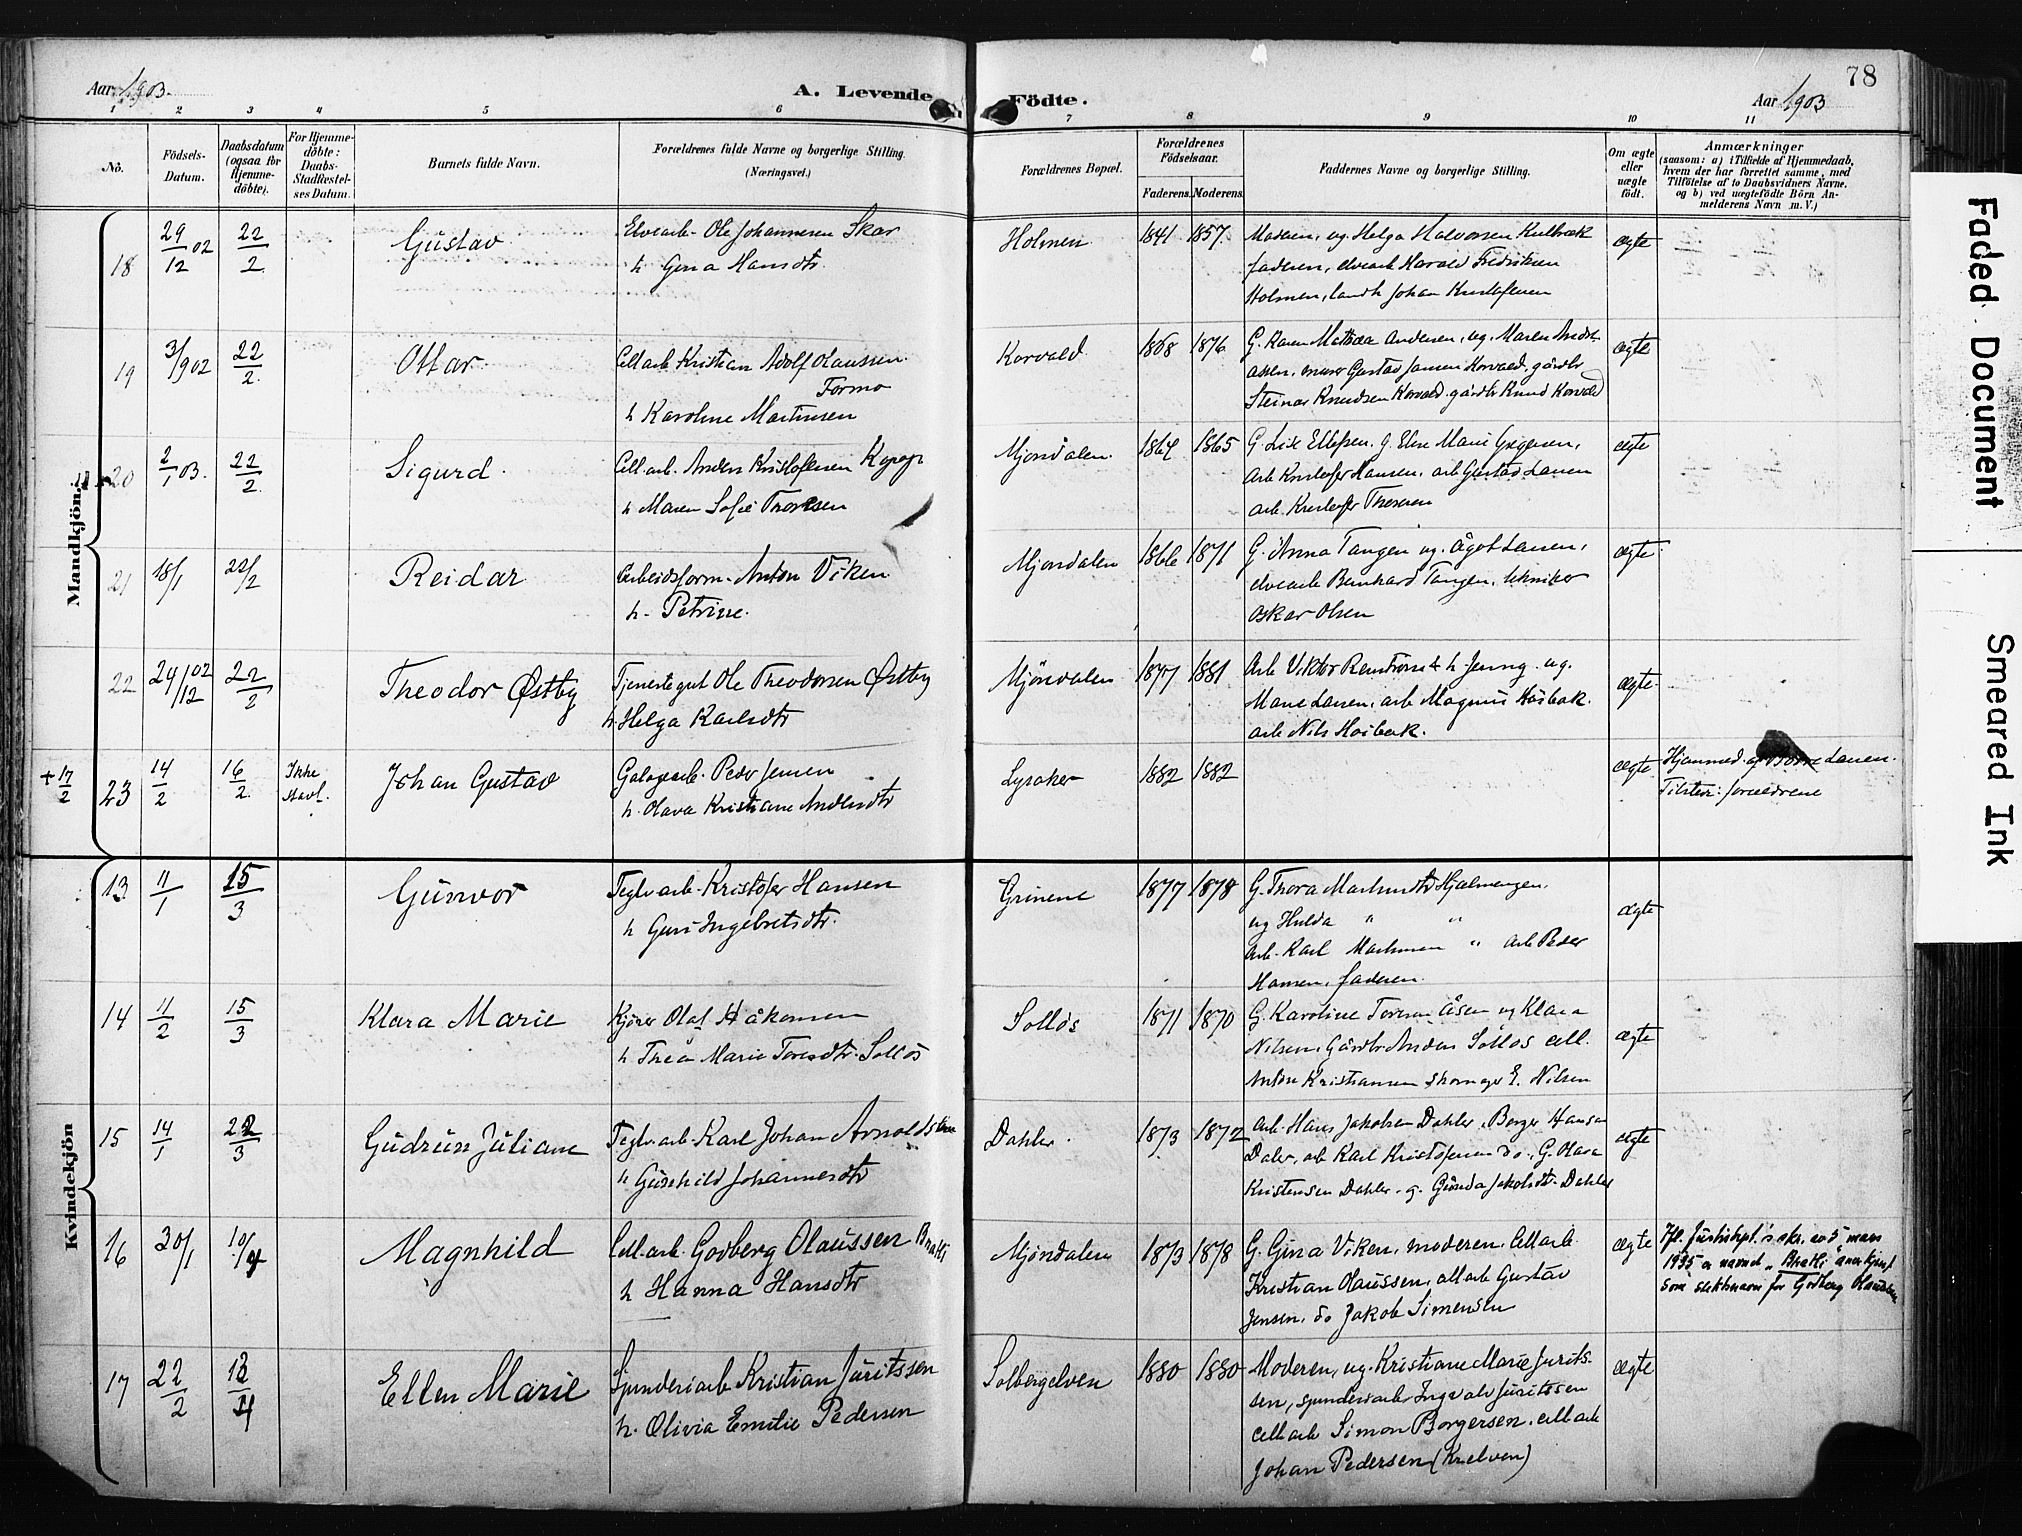 78
Aar 1903.
A. Levende Födte.
Aar 1903
1 2 3 4 5 6 7 8 9 10 11
No.
Födsels-Datum.
Daabsdatum (ogsaa for Hjemme-döbte).
For Hjemme-döbte: Daabs-Stadfæstel-ses Datum.
Barnets fulde Navn.
Forældrenes fulde Navne og borgerlige Stilling. (Næringsvei.)
Forældrenes Bopæl.
Forældrenes Födselsaar.
Faderens. Moderens.
Faddernes Navne og borgerlige Stilling.
Om ægte eller uægte født.
Anmærkninger
(saasom: a) i Tilfælde af Hjemmedaab,
hvem der har forrettet samme, med
Tilföielse af to Daabsvidners Navne.
og b) ved uægtefödte Börn An-
melderens Navn m. V.)
Mandkjön.
18 29/12 02 22/2 Gustav Elvearb. Ole Johannesen Skar Holmen 1841 1857 Moderen, ug. Helga Halvorsen Kulbræk ægte
h. Gina Hansdtr. faderen, elvearb Harald Fredriksen
Holmen, landh Johan Kristofersen
19 3/9 02 22/2. Ottar Cell.arb Kristian Adolf Olaussen Korvald 1868 1876 G. Karen Mathea Andersen, ug. Maren ægte
Formo murer Gustav Jansen Korvald, gårdbr
h Karoline Martinsen Steinar Knudsen Korvald. gårdbr Knud Korvald
20 2/1 03. 22/2. Sigurd Cell.arb. Anders Kristofersen Mjöndalen 1864 1865 G. Lise Ellefsen. g. Else Marie ægte
h Maren Sofie Thoresen Arb Kristofer Hansen, arb Gustav Larsen
arb. Kristofer Thoresen
21 18/1 22/2 Reidar Arbeidsform. Anton Viken Mjondalen 1866 1871 G. Anna Tangen ug. Ågot Larsen, ægte
h. Petrine. elvearb Bernhard Tangen, tekniker
Oskar Olsen
22 24/12 02 22/2 Theodor Østby Tjenestegut Ole Theodorsen Østby Mjöndalen 1877 1881 Arb Viktor h. Jenny. ug. ægte
h. Helga Karlsdtr Marie Larsen, arb Magnus Høibak.
arb Nils Høibak.
+ 17/2 23 14/2 16/2 Ikke stadf. Johan Gustav Peder Jensen Lysaker 1882 1882 ægte Hjemmed. af Larsen.
h. Olava Kristiane Andersdtr Tilstede: forældrene
Kvindekjön
13 11/1 15/3 Gunvor Teglv.arb. Kristofer Hansen Grinene 1877 1878 G. Thora Hjalmengen. ægte
h Guri Ingebretsdtr. ug Hulda " "
Arb. Karl " arb Peder
Hansen, faderen.
14 11/2 15/3 Klara Marie Kjører Olaf Håkonsen Solløs 1871 1870 G. Karoline Toresen Åsen ug Klara ægte
h Thea Marie Toresdtr. Solløs Nilsen, Gårdbr. Anders Solløs cell.
Anton Kristiansen skomager E. Nilsen
15 14/1 22/3 Gudrun Juliane Teglv.arb Karl Johan Arnoldsen Dahler. 1873 1872 arb. Hans Jakobsen Dahler, Borger Hansen ægte
h Gunhild Johannesdtr Daler, arb Karl Kristofersen do., G. Olava
Kristensen Dahler. g. Gunda Jakobsdtr. Dahler
16 30/1 10/4 Magnhild Cell.arb. Godberg Olaussen Bratli Mjøndalen 1873 1878 G. Gina Viken, moderen, Cellarb. ægte Ifl. Justisdept.s skr. av 5 mars
h Hanna Hansdtr Kristian Olaussen, cellarb Gustav 1935 er navnet "Bratli" anerkjent
Jensen, do Jakob Simensen som slektsnavn for Godberg Olaussen
17 22/2 13/4 Ellen Marie Spinderiarb Kristian Juritssen Solbergelven 1880 1880 Moderen, ug. Kristiane Marie Jurits- ægte
h. Olivia Emilie Pedersen sen, spinderiarb Ingvald Juritssen
cellarb Simon Borgersen. cellarb
Johan Pedersen (Krelven)
Faded Document
Smeared Ink